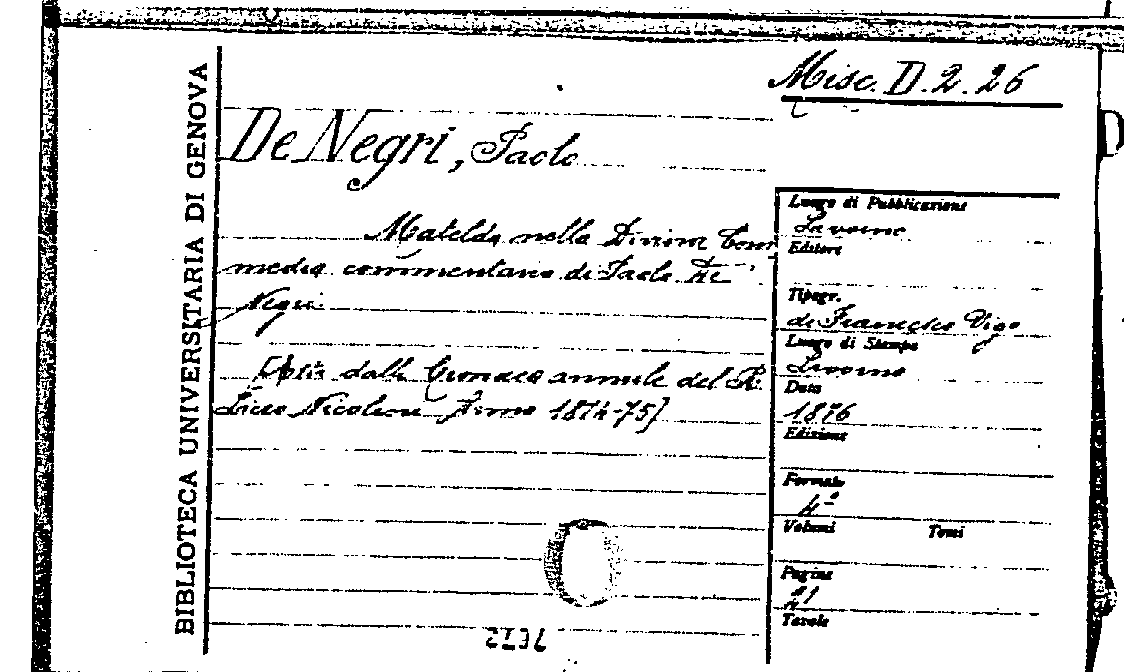 BIBLIOTECA UNIVERSITARIA DI GENOVA
Misc. D. 2. 26
De Negri, Paolo
Matelda nella Divina Com
media commentario di Paolo De
Negri
dalla Cronaca annuale del R.
Liceo Niccolini Anno 1874-75]
Luogo di Pubblicazione
Livorno
Editore
Tipogr.
di Francesco Vigo
Luogo di Stampa
Livorno
Data
1876
Edizione
Formato
4º
Volumi Tomi
Pagine
41
Tavole